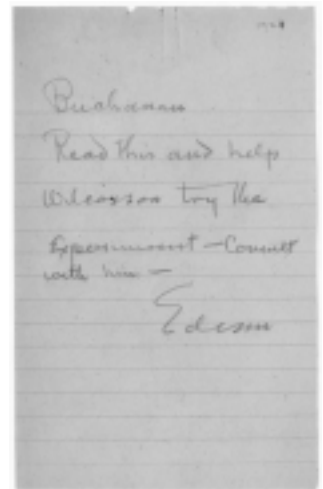 1928
Buchanan
Read this and help
Wilcoxson try the
Experiment — Consult
with him —
Edison